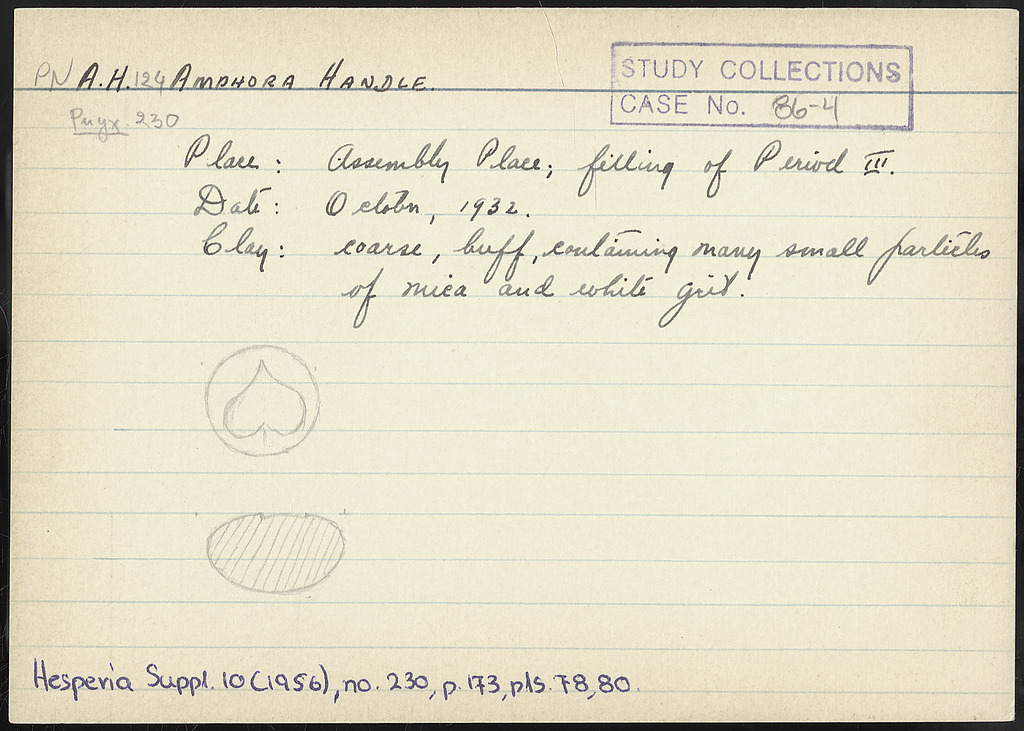 PN A.H. 124 AMPHORA HANDLE.
STUDY COLLECTIONS
CASE No. 86-4
Pnyx 230
Place: Assembly Place; filling of Period III.
Date: October, 1932.
Clay: coarse, buff, containing many small particles
of mica and white grit.
Hesperia Suppl. 10 (1956), no. 230, p. 173, pls. 78, 80.